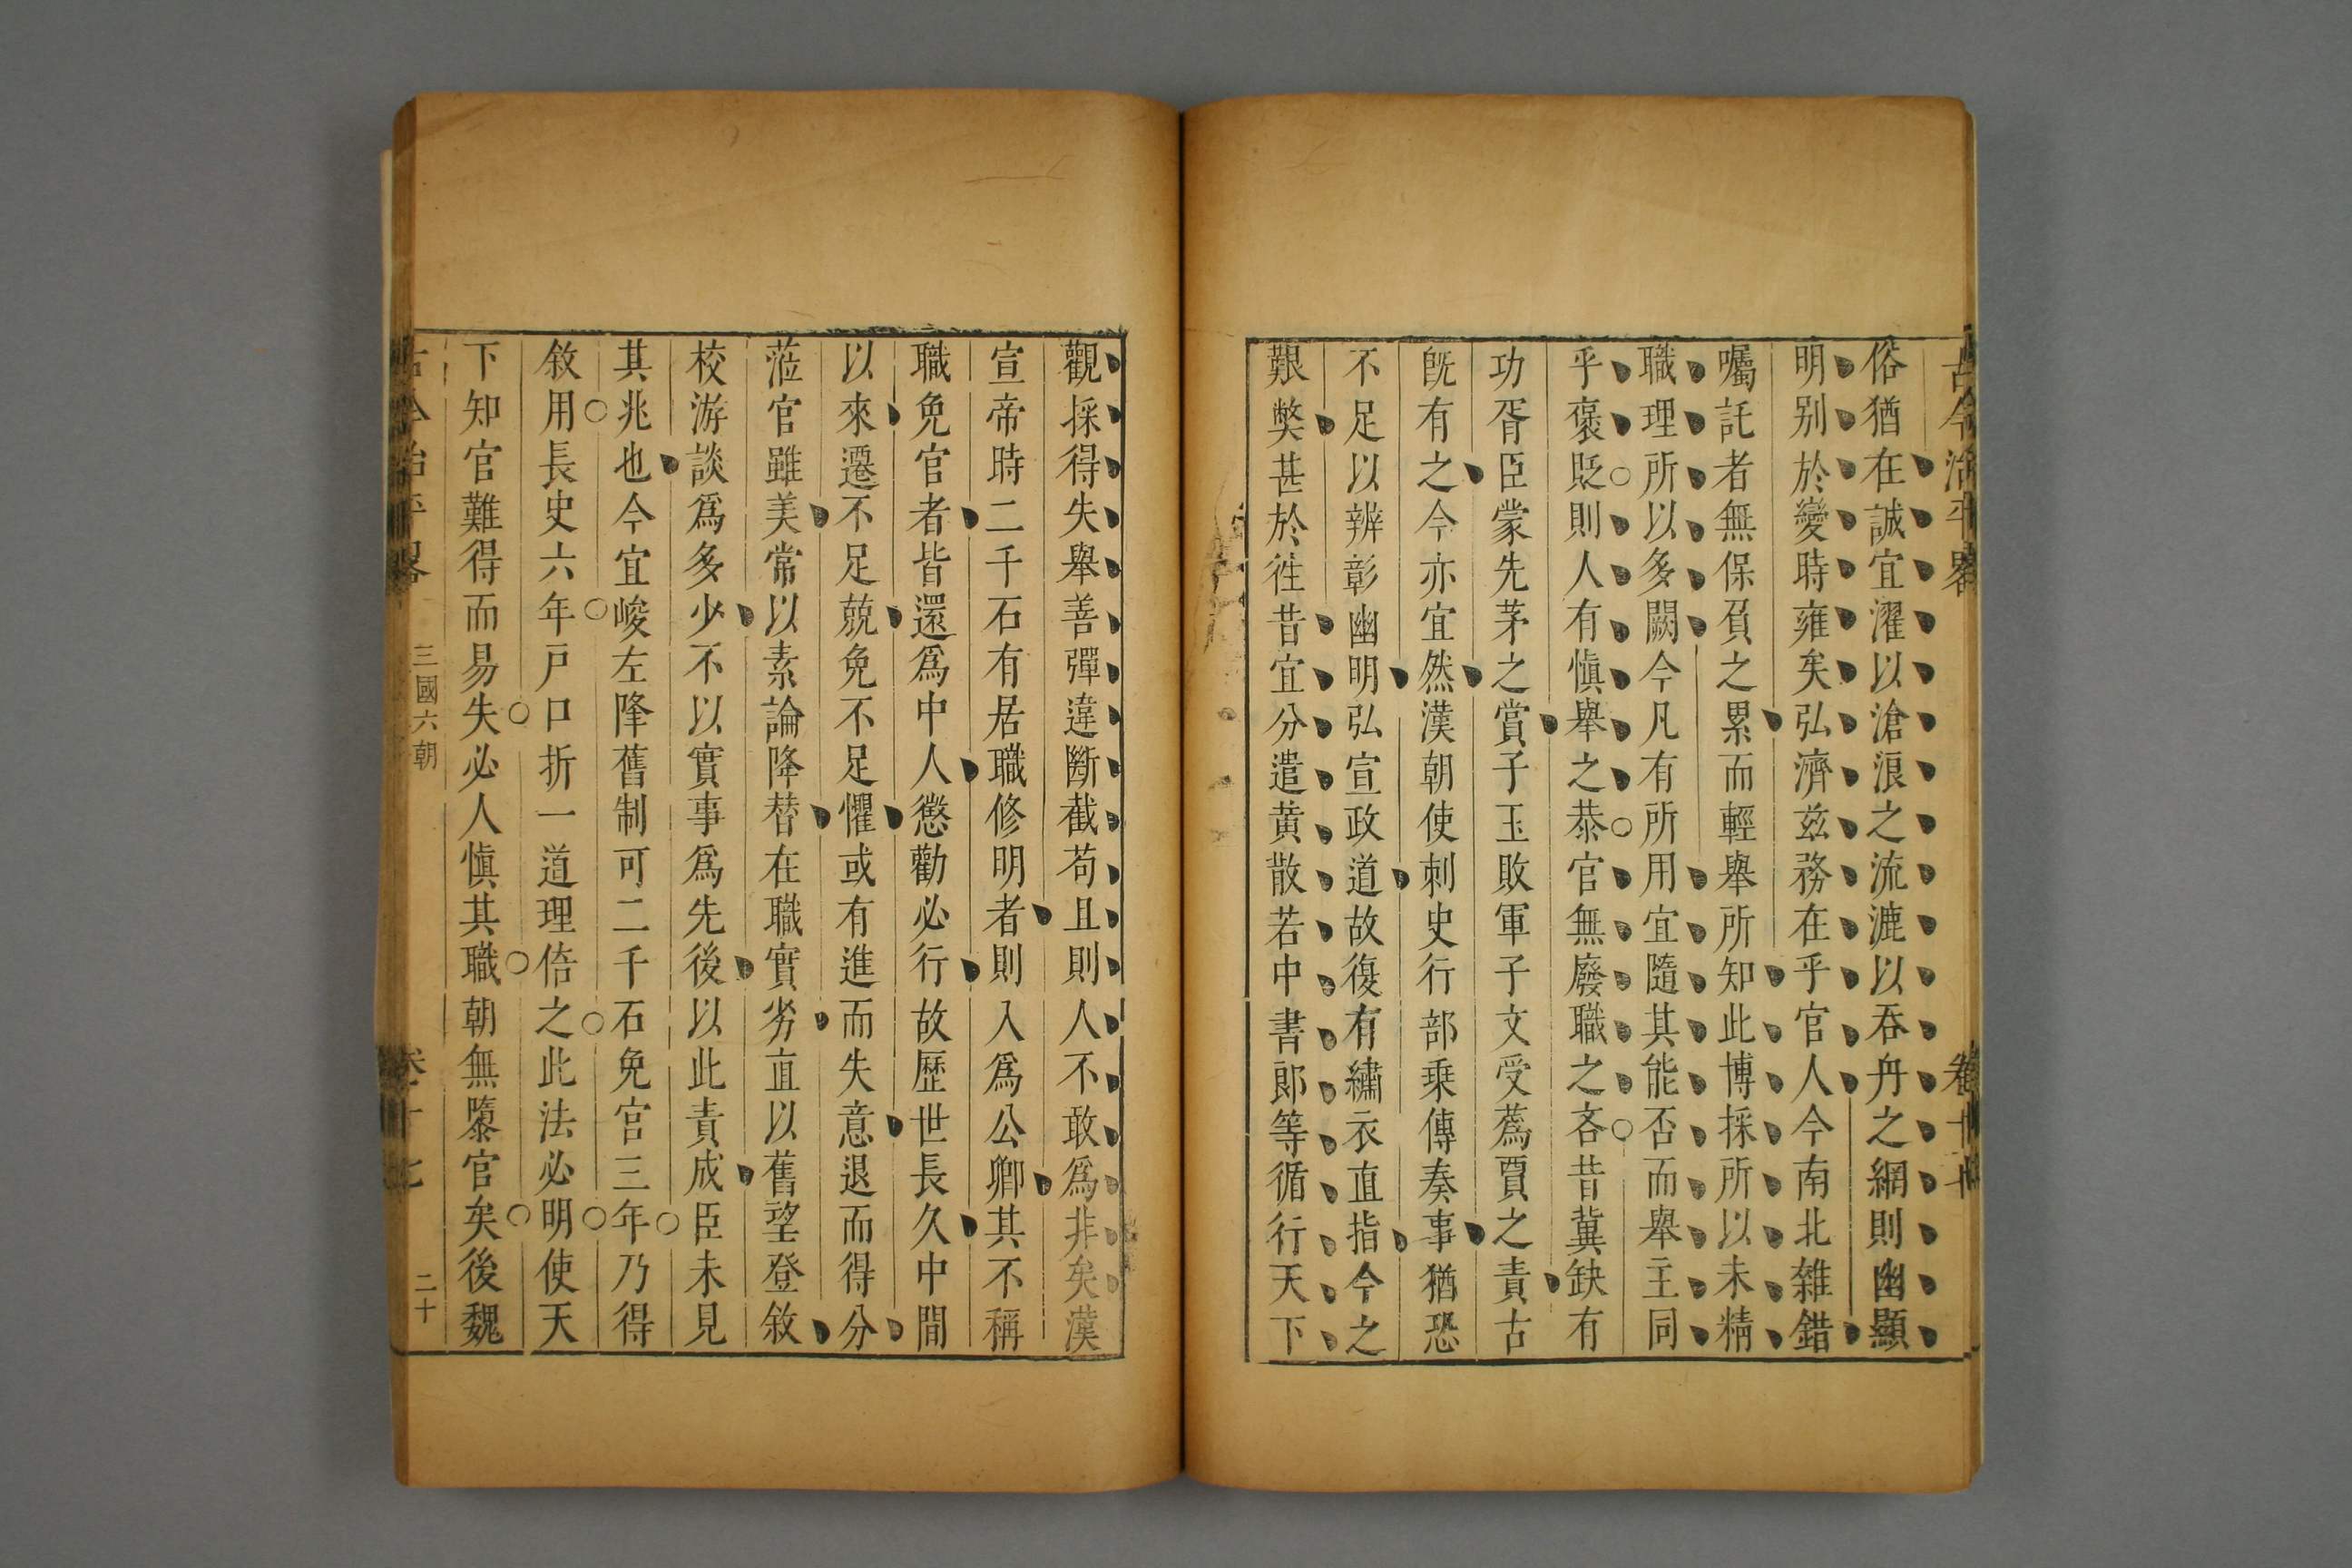 古今治平畧 卷十七
俗猶在誠宜濯以滄浪之流漉以吞舟之網則幽顯
明别於變時雍矣弘濟兹務在乎官人今南北雜錯
囑託者無保負之累而輕舉所知此博採所以未精
職理所以多闕今凡有所用宜隨其能否而舉主同
乎褒貶則人有慎舉之恭官無廢職之吝昔冀缺有
功胥臣蒙先茅之賞子玉敗軍子文受蔿賈之責古
旣有之今亦宜然漢朝使刺史行部乗傳奏事猶恐
不足以辨彰幽明弘宣政道故復有繡衣直指今之
艱獘甚於徃昔宜分遣黄散若中書郎等循行天下
觀採得失舉善彈違斷截苟且則人不敢爲非矣漢
宣帝時二千石有居職修明者則入爲公卿其不稱
職免官者皆還爲中人懲勸必行故歷世長久中間
以來遷不足兢免不足懼或有進而失意退而得分
蒞官雖美常以素論降替在職實劣直以舊望登敘
校游談爲多少不以實事爲先後以此責成臣未見
其兆也今宜峻左降舊制可二千石免官三年乃得
敘用長史六年戸口折一道理倍之此法必明使天
下知官難得而易失必人慎其職朝無隳官矣後魏
古今治平畧 三國六朝 卷十七 二十